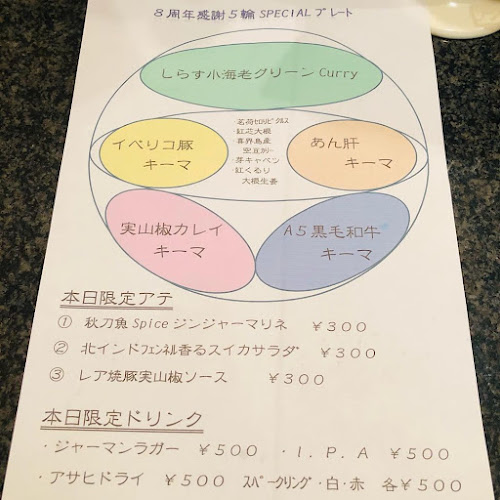 8周年感謝5輪SPECIALプレート
しらす小海老グリーンCurry
イベリコ豚
キーマ
・紅芯大根
・喜界島産
・芽キャベツ
・紅くるり
大根生姜
あん肝
キーマ
実山椒カレイ
キーマ
A5黒毛和牛
キーマ
本日限定アテ
① 秋刀魚Spiceジンジャーマリネ ¥300
② 北インドフェンネル香るスイカサラダ ¥300
③ レア焼豚実山椒ソース ¥300
本日限定ドリンク
・ジャーマンラガー ¥500 ・I.P.A ¥500
・アサヒドライ ¥500 スパークリング・白・赤 各¥500